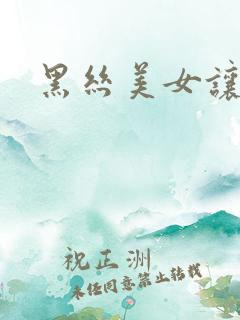 黑丝美女讓
祝正洲
未经同意禁止转载